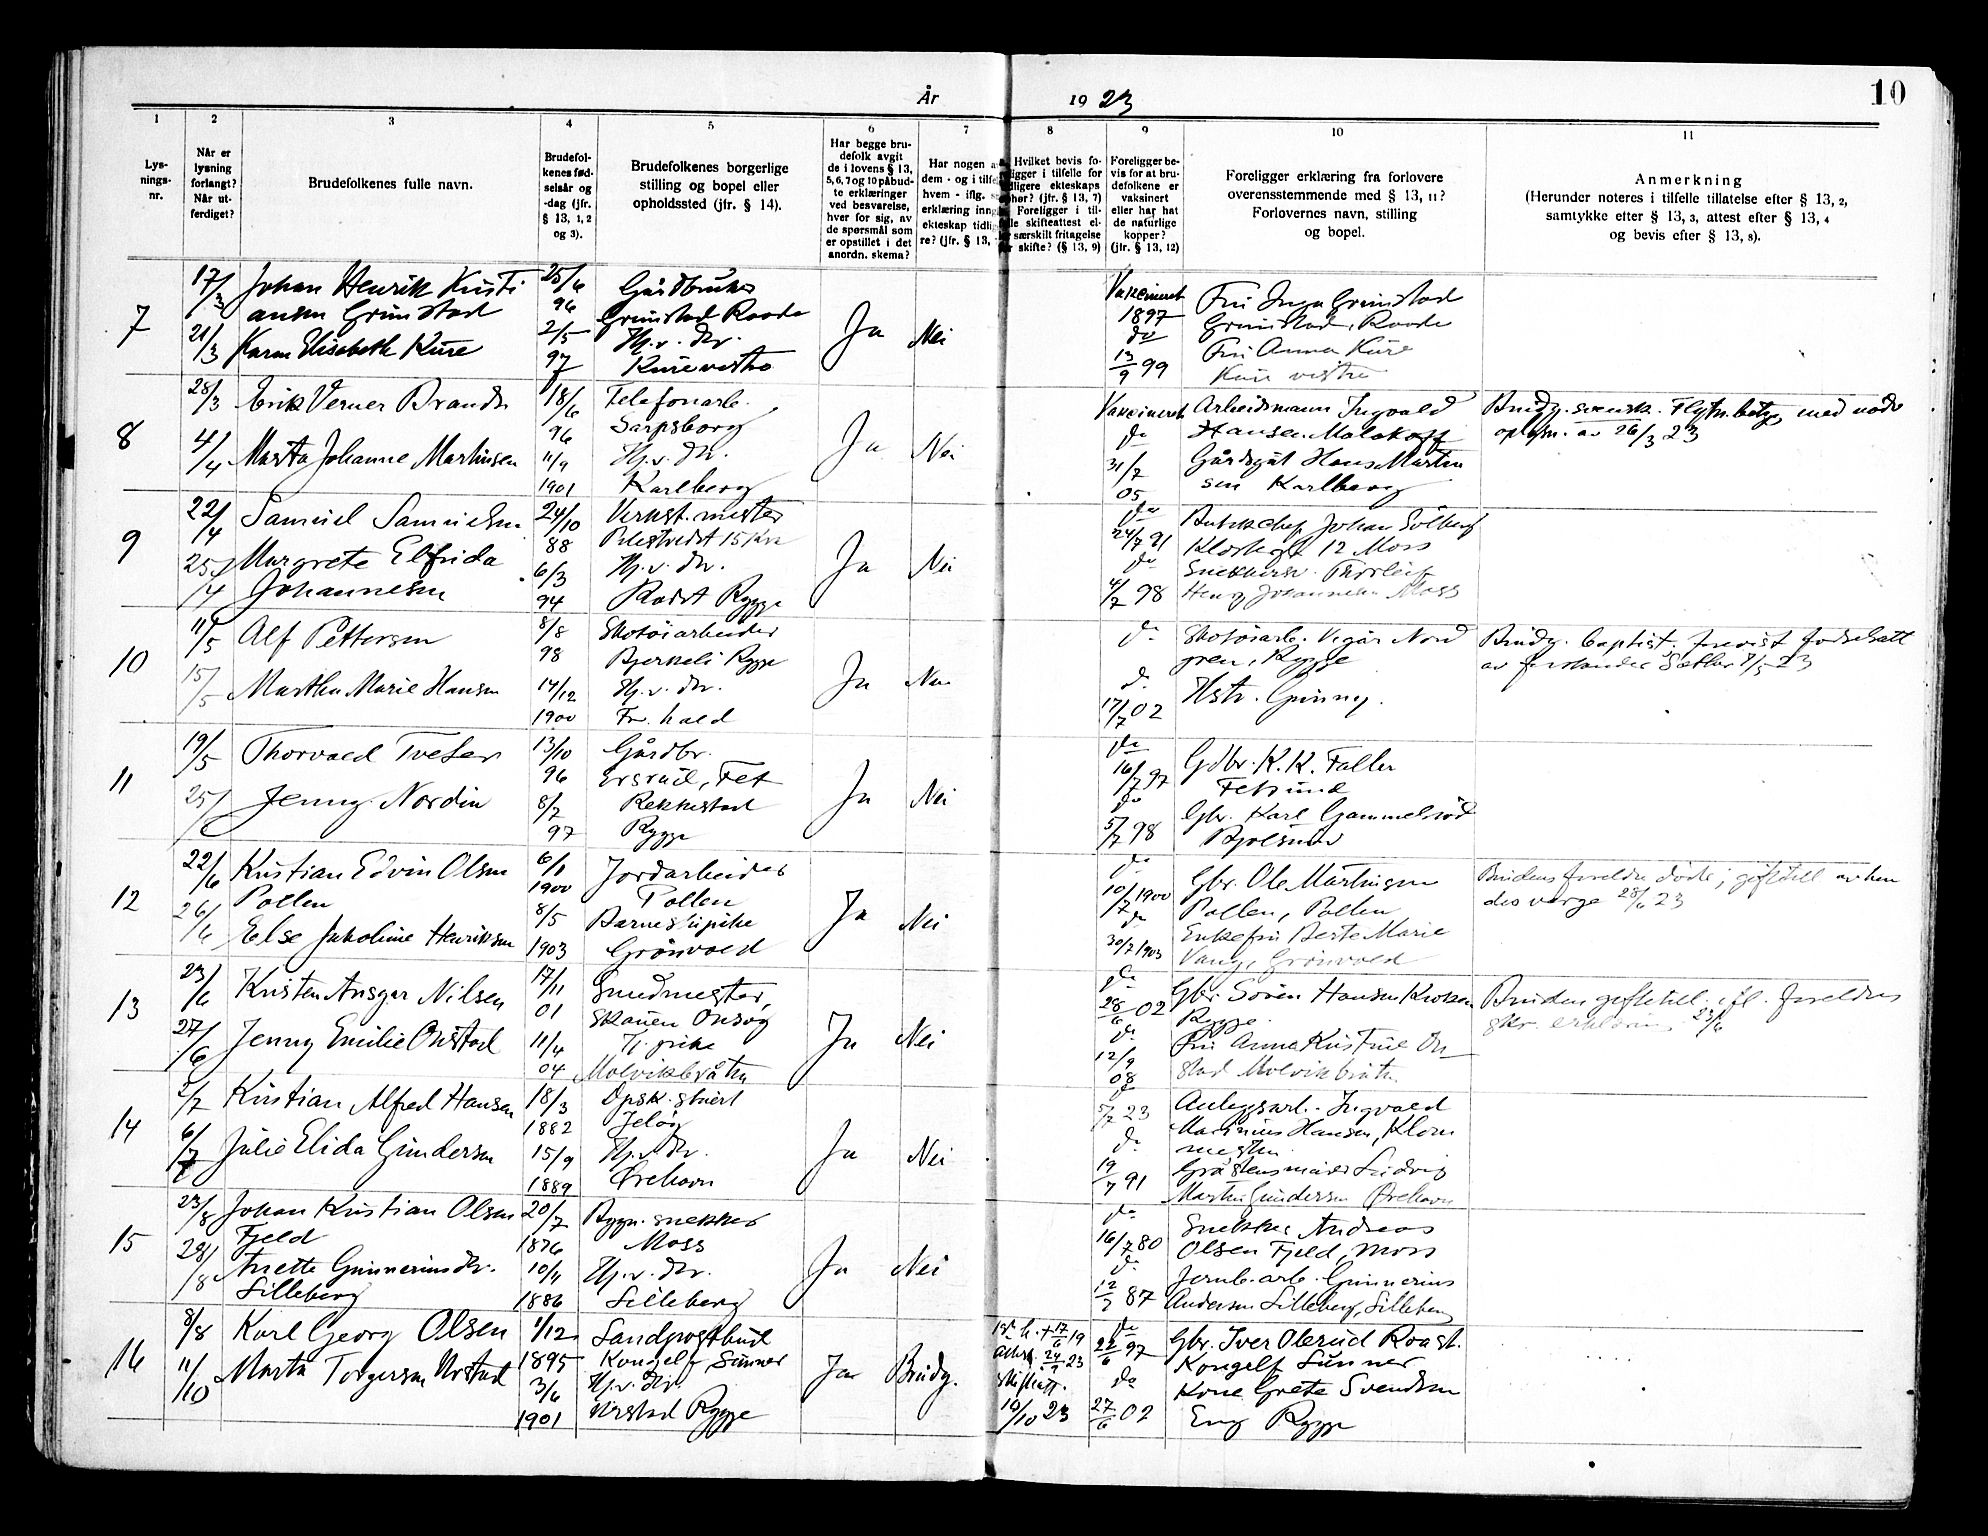 År 1923
10
1 2 3 4 5 6 7 8 9 10 11
Lys-
nings-
nr.
Når er
lysning
forlangt?
Når ut-
ferdiget?
Brudefolkenes fulle navn.
Brudefol-
kenes fød-
selsår og
-dag (jfr.
§ 13, 1, 2
og 3).
Brudefolkenes borgerlige
stilling og bopel eller
opholdssted (jfr. § 14).
Har begge bru-
defolk avgit
de i lovens § 13,
5, 6, 7 og 10 påbud-
te erklæringer
ved besvarelse,
hver for sig, av
de spørsmål som
er opstillet i det
anordn. skema?
Har nogen
dem - og i tilf
hvem - iflg.
erklæring inn
ekteskap tidli
re? (jfr. § 13,
Hvilket bevis fo-
ligger i tilfelle for
tidligere ekteskaps
ophør? (jfr. § 13, 7)
Foreligger i til-
le skifteattest el-
r særskilt fritagelse
for skifte? (§ 13, 9)
Foreligger be-
vis for at bru-
defolkene er
vaksinert
eller har hat
de naturlige
kopper?
(jfr. § 13, 12)
Foreligger erklæring fra forlovere
overensstemmende med § 13, 11?
Forlovernes navn, stilling
og bopel.
Anmerkning
(Herunder noteres i tilfelle tillatelse efter § 13, 2,
samtykke efter § 13, 3, attest efter § 13, 4
og bevis efter § 13, 8).
7
17/3
21/3
Johan Henrik Kristi
ansen Grimstad
Karen Elisabeth Kure
25/6
96
2/5
97
Gårdbruker
Grimstad Raade
Hj.v. dtr.
Kure vestre
Ja
Nei
Vakcineret
1897
do
13/9 99
Fru Inga Grimstad
Grimstad, Raade
Fru Anna Kure
Kure vestre
8
28/3
4/4
Erik Verner Brandt
Marta Johanne Martinsen
18/6
96
11/9
1901
Telefonarb.
Sarpsborg
Hj.v. dtr.
Karlberg
Ja
Nei
Vakcineret
do
31/7
05
Arbeidsmann Ingvald
Hansen Malakoff
Gårdsgut Hans Martin
sen Karlberg
Brudg. svensk. Flytn.betyg med nødv
oplysn. av 26/3 23
9
22/4
25/4
Samuel Samuelsen
Margrete Elfrida
Johannesen
24/10
88
6/3
94
Verkst. mester
Hj.v. dtr.
Rygge
Ja
Nei
do
24/7 91
do
4/7 98
Johan Solberg
12 Moss
Moss
10
11/5
15/5
Alf Pettersen
Martha Marie Hansen
8/8
98
14/12
1900
Skotøiarbeider
Bjerkeli Rygge
Hj.v. dtr.
Fr. hald
Ja
Nei
do
do
17/7 02
Skotøiarb. Vegår Nord
gren, Rygge
Hstr. Gunny.
Brudg. baptist. forevist fødselsatt
av forstander Sæther 7/5 23
11
19/5
25/
Thorvald Tveter
Jenny Nordin
13/10
96
8/7
97
Gårdbr.
Fet
Rekkestad
Rygge
Ja
Nei
do
16/7 97
do
5/7 98
Gdbr. K. K. Faller
Fetsund
Gbr. Karl Gammelsrød
12
22/6
26/6
Kristian Edvin Olsen
Pollen
Else Jakoline Henriksen
6/8
1900
8/5
1903
Jordarbeider
Pollen
Barnepleiersk
Grönvold
Ja
Nei
do
10/7 1900
do
30/7 1903
Gbr. Ole Martinsen
Pollen, Pollen
Enkefru Berte Marie
Vang, Grönvold
Brudens foreldre døde; giftetill av hen
des verge 28/6 23
13
23/6
27/6
Kristen Ansgar Nilsen
Jenny Emilie Onstad
17/11
01
11/4
04
Smedmester,
Skauen Onsøy
Tj.pike
Molvikbråten
Ja
Nei
do
28/6 02
do
12/9
08
Gbr. Sören Hansen Kroken
Rygge
Fru Anna Kristine On
stad Molvikbråten
Bruden giftetill. ifl. foreldres
skr. erklæring 23/6
14
2/7
6/7
Kristian Alfred Hansen
Julie Elida Gundersen
18/3
1882
15/9
1889
Jeløy
Hj.v. dtr.
Ørehavn
Ja
Nei
do
5/7 23
do
19/7 91
Anlegsarb. Ingvald
Marinius Hansen, Klom
mesten
Gråstensmurer Ludvig
Martin Gundersen Ørehavn
15
23/8
28/8
Johan Kristian Olsen
Fjeld
Anette Gunneriusdtr.
Lilleberg
20/7
1876
10/11
1886
Bygn. snekker
Moss
Hj.v. dtr.
Lilleberg
Ja
Nei
do
16/7 80
do
12/7 87
Snekker Andreas
Olsen Fjeld, Moss
Jernb.arb. Gunnerius
Andersen Lilleberg, Lilleberg
16
8/8
11/10
Karl Georg Olsen
Marta Torgersen Urstad
1/12
1895
3/6
1901
Landpostbud
Kongelf Sunner
Hj.v. dtr.
Urstad Rygge
Ja
Brudg.
17/6 19
attest 24/9 23
skifteatt.
10/10 23
do
22/6 97
do
27/6 02
Gbr. Iver Olsrud Roast.
Kongelf Sunner
Kone Grete Svendsen
Eng Rygge